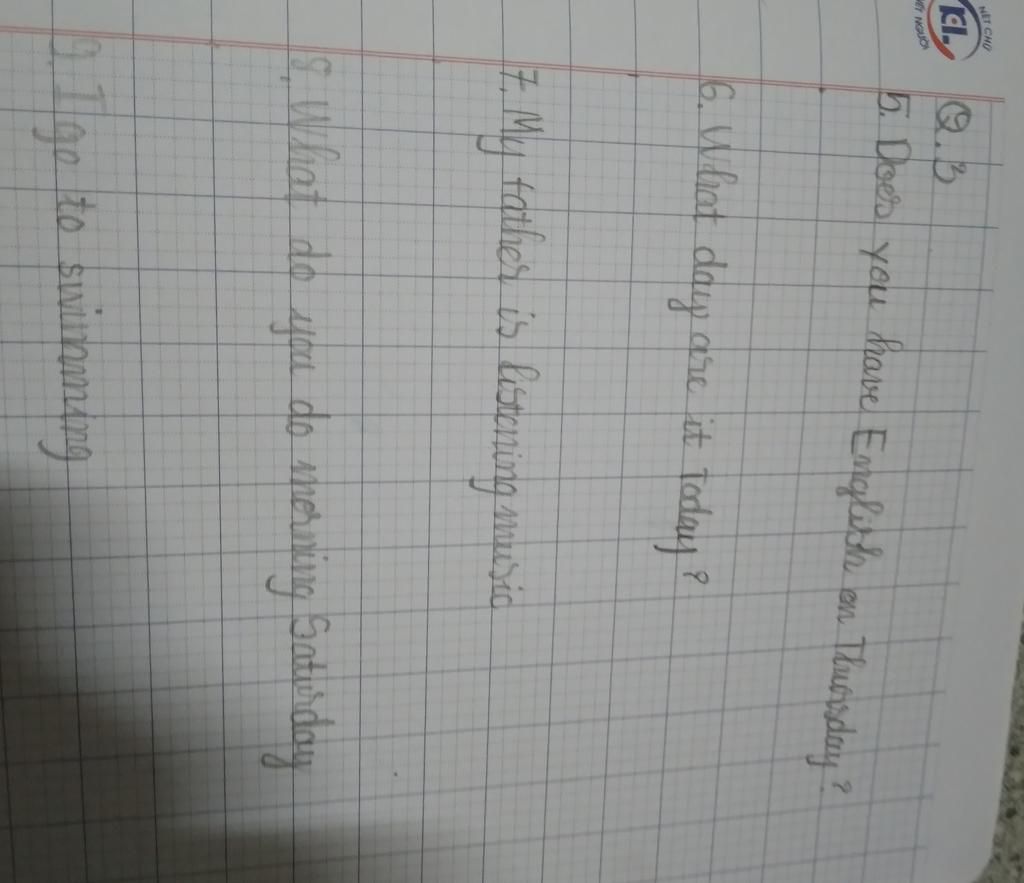 NÉT CHỮ
KL
NẾT NGƯỜI
Q.3
5. Does you have English on Thursday?
6. What day are it Today?
7. My father is listening music
8. What do you do morning Saturday
9. I go to swimming